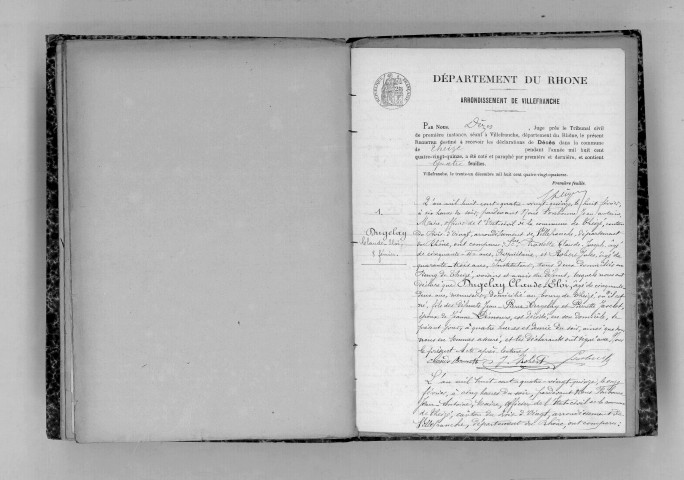 DÉPARTEMENT DU RHONE
ARRONDISSEMENT DE VILLEFRANCHE
Par Nous, , Juge près le Tribunal civil
de première instance, séant à Villefranche, département du Rhône, le présent
Registre destiné à recevoir les déclarations de Décès dans la commune
de Theizé pendant l'année mil huit cent
quatre-vingt-quinze, a été coté et paraphé par première et dernière, et contient
quatre feuilles.
Villefranche, le trente-un décembre mil huit cent quatre-vingt-quatorze.
Première feuille.
1.
Dugelay
Claude Eloi
8 février.
L'an mil huit cent quatre-vingt-quinze, le huit février,
à six heures du soir, pardevant Nous Jean Antoine,
Maire, officier de l'état civil de la commune de Theizé, canton
du Bois d'Oingt, arrondissement de Villefranche, département
du Rhône, ont comparu Claude Joseph, âgé
de cinquante ans, Propriétaire, et Robert Jules, âgé de
quarante-trois ans, Instituteur, tous deux domiciliés au
Bourg de Theizé, voisins et amis du défunt, lesquels nous ont
déclaré que Dugelay Claude Eloi, âgé de cinquante
ans, menuisier, domicilié au bourg de Theizé, où il est
né, fils des défunts Jean Pierre Dugelay et
époux de Jeanne, est décédé, en son domicile, le
présent jour, à quatre heures et demie du soir, ainsi que
nous en sommes assuré, et les déclarants ont signé avec nous
le présent Acte après lecture.
J. Robert
L'an mil huit cent quatre-vingt-quinze, le onze
février, à cinq heures du soir, pardevant Nous
Jean-Antoine, Maire, officier de l'état civil de la commune
de Theizé, canton du Bois d'Oingt, arrondissement de
Villefranche, département du Rhône, ont comparu: